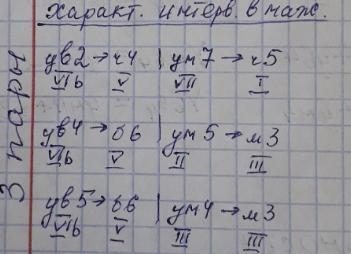 Характ. интерв. в маж.
3 пары
ув2→ч4 | ум7→ч5
VIb V VII I
ув4→б6 | ум5→м3
VIb V II III
ув5→б6 | ум4→м3
VIb V III III